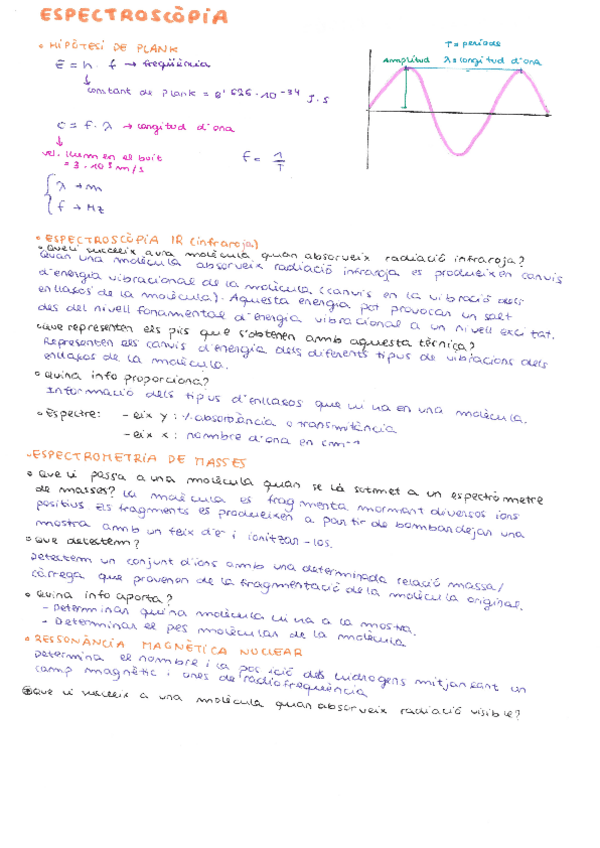 ESPECTROSCÒPIA
• HIPÒTESI DE PLANK
E = h · f → freqüència
constant de Plank = 6'626 · 10⁻³⁴ J·s
c = f · λ → longitud d'ona
vel. llum en el buit
= 3 · 10⁸ m/s
f = 1/T
λ → m
f → Hz
T = període
Amplitud λ = longitud d'ona
• ESPECTROSCÒPIA IR (infraroja)
• Què li succeix a una molècula quan absorveix radiació infraroja?
Quan una molècula absorveix radiació infraroja es produeixen canvis
d'energia vibracional de la molècula (canvis en la vibració dels
enllaços de la molècula). Aquesta energia pot provocar un salt
des del nivell fonamental d'energia vibracional a un nivell excitat.
• Què representen els pics que s'obtenen amb aquesta tècnica?
Representen els canvis d'energia dels diferents tipus de vibracions dels
enllaços de la molècula.
• Quina info proporciona?
Informació dels tipus d'enllaços que hi ha en una molècula.
• Espectre: - eix y: % absorbància o transmitància
- eix x: nombre d'ona en cm⁻¹
- ESPECTROMETRIA DE MASSES
• Què li passa a una molècula quan se la sotmet a un espectròmetre
de masses? La molècula es fragmenta formant diversos ions
positius. Els fragments es produeixen a partir de bombardejar una
mostra amb un feix d'e⁻ i ionitzar-los.
• Què detectem?
Detectem un conjunt d'ions amb una determinada relació massa/
càrrega que provenen de la fragmentació de la molècula original.
• Quina info aporta?
- Determinar quina molècula hi ha a la mostra.
- Determinar el pes molecular de la molècula
• RESSONÀNCIA MAGNÈTICA NUCLEAR
Determina el nombre i la posició dels hidrogens mitjançant un
camp magnètic i ones de radiofreqüència
Què li succeix a una molècula quan absorveix radiació visible?